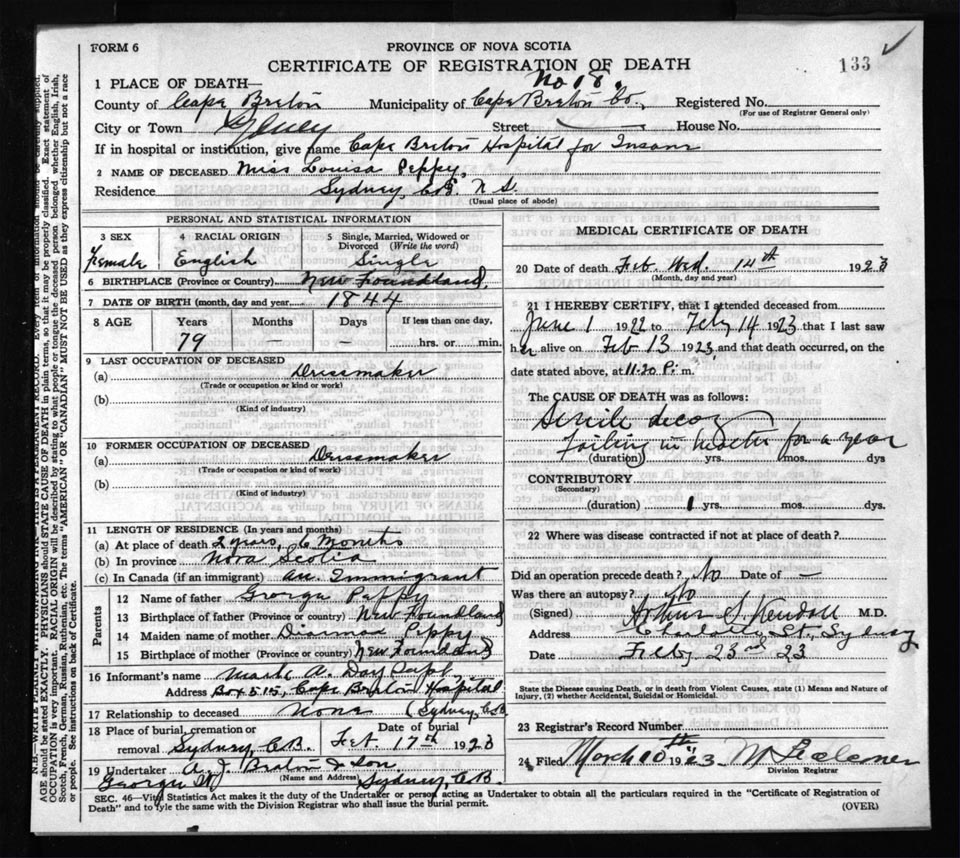 FORM 6
PROVINCE OF NOVA SCOTIA
CERTIFICATE OF REGISTRATION OF DEATH
133
No 18.
1 PLACE OF DEATH—
County of Cape Breton Municipality of Cape Breton Co., Registered No.
(For use of Registrar General only)
City or Town Sydney Street House No.
If in hospital or institution, give name Cape Breton Hospital for Insane
2 NAME OF DECEASED Miss Louisa Peppy,
Residence Sydney, C.B. N S.
(Usual place of abode)
PERSONAL AND STATISTICAL INFORMATION
3 SEX
Female
4 RACIAL ORIGIN
English
5 Single, Married, Widowed or Divorced (Write the word)
Single
6 BIRTHPLACE (Province or Country) New Foundland,
7 DATE OF BIRTH (month, day and year) 1844
8 AGE Years Months Days If less than one day,
79 — — hrs. or min.
9 LAST OCCUPATION OF DECEASED
(a) Dressmaker
(Trade or occupation or kind or work)
(b)
(Kind of industry)
10 FORMER OCCUPATION OF DECEASED
(a) Dressmaker
(Trade or occupation or kind of work)
(b)
(Kind of industry)
11 LENGTH OF RESIDENCE (In years and months)
(a) At place of death 2 years, 6 Months
(b) In province Nova Scotia
(c) In Canada (if an immigrant) an Immigrant
Parents
12 Name of father George Peppy
13 Birthplace of father (Province or country) New Foundland
14 Maiden name of mother Peppy
15 Birthplace of mother (Province or country) New Foundland
16 Informant's name Mark A. Day Supt.
Address Box 515, Cape Breton Hospital
17 Relationship to deceased None (Sydney, C.B.
18 Place of burial, cremation or removal Sydney C.B. Date of burial Feb. 17th 1923
19 Undertaker A. J. & Son
(Name and Address)
George St Sydney, C.B.
MEDICAL CERTIFICATE OF DEATH
20 Date of death Feb. Wed. 14th 1923
(Month, day and year)
21 I HEREBY CERTIFY, that I attended deceased from
June 1 1922 to Feby 14 1923 that I last saw
her alive on Feb 13 1923, and that death occurred, on the
date stated above, at 11.20 P. m.
The CAUSE OF DEATH was as follows:
Senile decay
Failing in health for a year
(duration) yrs. mos. dys
CONTRIBUTORY
(Secondary)
(duration) 1 yrs. mos. dys.
22 Where was disease contracted if not at place of death?
Did an operation precede death? No Date of —
Was there an autopsy? No
(Signed) Arthur S. Kendall M.D.
Address Charlotte St., Sydney
Date Feby 23rd 23
State the Disease causing Death, or in death from Violent Causes, state (1) Means and Nature of
Injury, (2) whether Accidental, Suicidal or Homicidal.
23 Registrar's Record Number
24 Filed March 10th 1923
Division Registrar
SEC. 46—Vital Statistics Act makes it the duty of the Undertaker or person acting as Undertaker to obtain all the particulars required in the "Certificate of Registration of
Death" and to fyle the same with the Division Registrar who shall issue the burial permit.
(OVER)
N.B.—WRITE PLAINLY WITH UNFADING INK—THIS IS A PERMANENT RECORD. Every item of information should be carefully supplied.
AGE should be stated EXACTLY. PHYSICIANS should STATE CAUSE OF DEATH in plain terms, so that it may be properly classified. Exact statement of
OCCUPATION is very important. RACIAL ORIGIN will be described by stating to what people or tongue the deceased person belonged whether English, Irish,
Scotch, French, German, Russian, Ruthenian, etc. The terms "AMERICAN" OR "CANADIAN" MUST NOT BE USED as they express citizenship but not a race
or people. See instructions on back of Certificate.